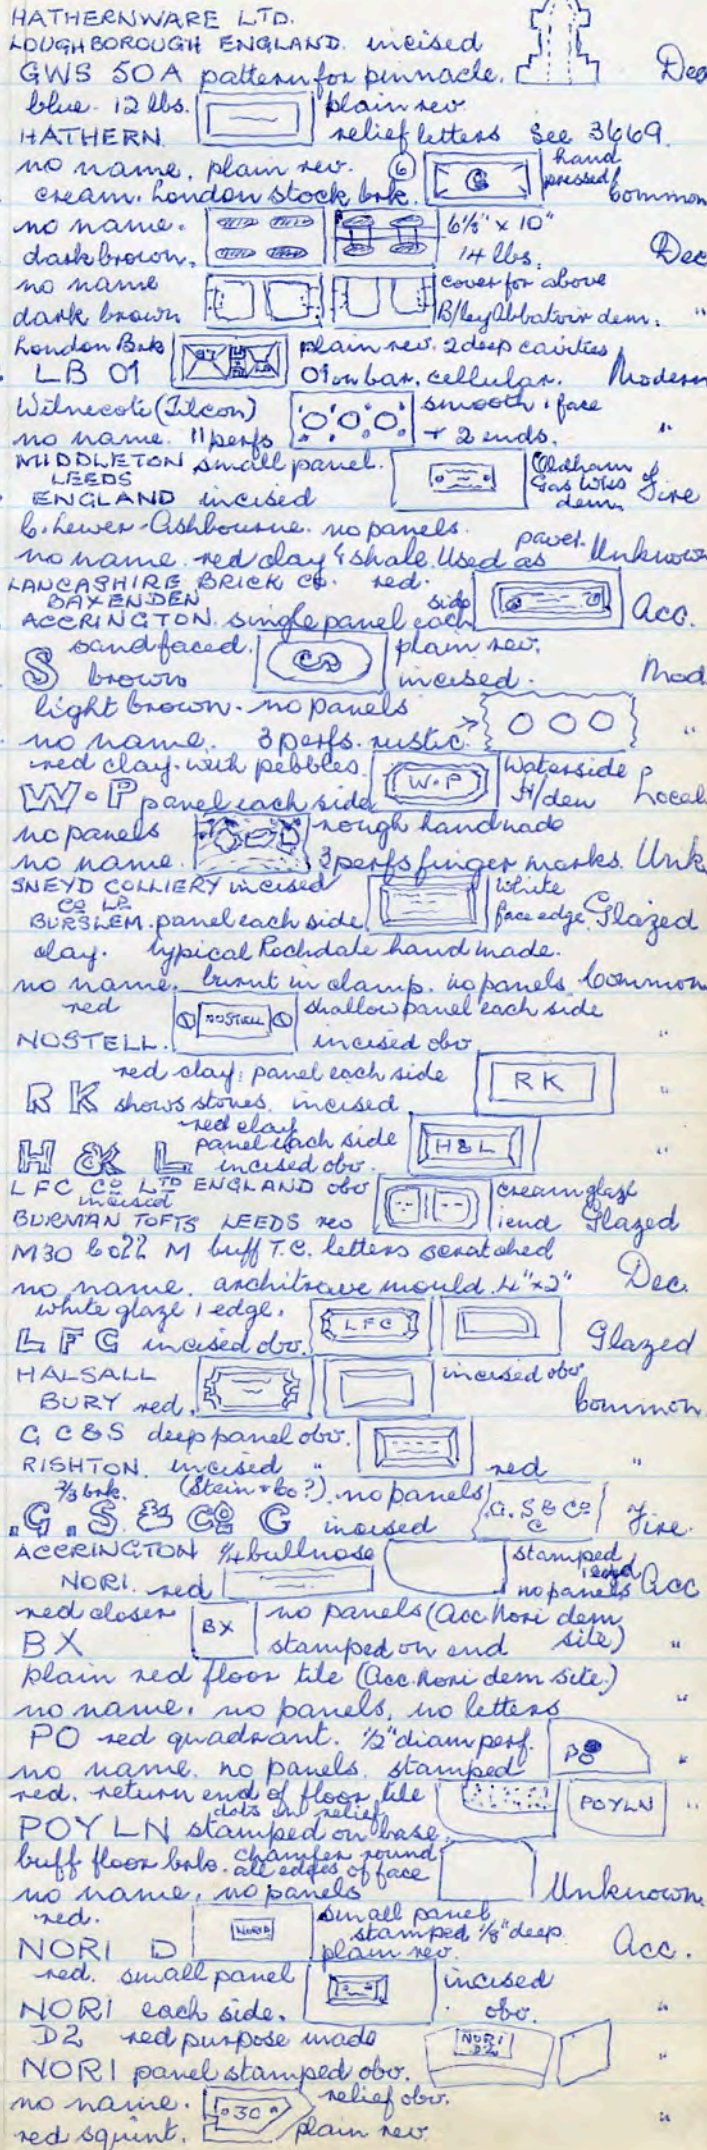 HATHERNWARE LTD.
LOUGHBOROUGH ENGLAND. incised
GWS 50A pattern for pinnacle. Dec
blue. 12 lbs. plain rev
HATHERN. relief letters See 3669.
no name, plain rev. 6 hand pressed
cream. London stock brk. Common
no name. 6⅛" x 10"
dark brown. 14 lbs. Dec
no name cover for above
dark brown B/ley Abbatoir dem. "
London Brk plain rev. 2 deep cavities
LB 01 01 on bar. cellular. Modern
Wilnecote (Tilcon) smooth 1 face
no name. 11 perfs + 2 ends. "
MIDDLETON small panel. Oldham
LEEDS Gas Wks
ENGLAND incised dem. Fire
C. Hewer Ashbourne. no panels.
no name. red clay & shale. Used as paver. Unknown
LANCASHIRE BRICK CO. red.
BAXENDEN side
ACCRINGTON. single panel each Acc.
sand faced. plain rev.
S brown incised. Mod
light brown. no panels
no name. 3 perfs. rustic. "
red clay. with pebbles. W.P Waterside
W.P panel each side H/den Local
no panels rough handmade
no name. 3 perfs finger marks. Unk.
SNEYD COLLIERY incised white
CO LD
BURSLEM. panel each side face edge. Glazed
clay. typical Rochdale hand made.
no name. burnt in clamp. no panels. Common
red NOSTELL shallow panel each side
NOSTELL. incised obv "
red clay, panel each side RK
RK shows stones. incised "
red clay
panel each side H&L
H & L incised obv. "
LFC CO LTD ENGLAND obv cream glaze
incised
BURMAN TOFTS LEEDS rev 1 end Glazed
M30 M buff T.C. letters scratched
no name. architrave mould. 4"x2" Dec.
white glaze 1 edge. LFC
LFC incised obv. Glazed
HALSALL incised obv
BURY red. Common.
G C & S deep panel obv.
RISHTON. incised " red "
⅔ brk. (Stein & Co?). no panels G. S & CO C
.G.S & CO C incised Fire.
ACCRINGTON bullnose stamped
NORI. red 1 edge no panels Acc
red closer BX no panels (Acc Nori dem
BX stamped on end site) "
plain red floor tile (Acc. Nori dem site.)
no name. no panels, no letters "
PO red quadrant. ½" diam perf. PO
no name. no panels. stamped "
red. return end of floor tile POYLN "
dots in relief
POYLN stamped on base.
buff floor brk. chamfer round all edges of face
no name, no panels Unknown.
red. NORI D small panel
stamped ⅛" deep.
NORI D plain rev. Acc.
red. small panel incised
NORI each side. obv. "
D2 red purpose made NORI D2
NORI panel stamped obv. "
no name. 30 relief obv.
red squint. plain rev "